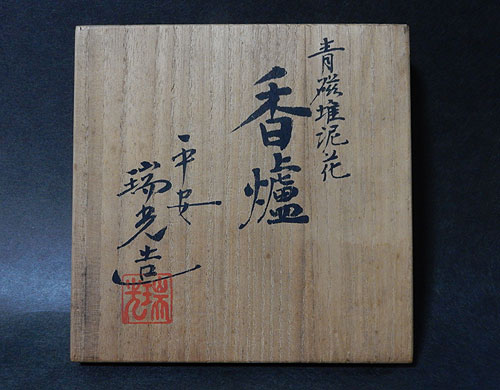 青磁堆泥花
香爐
平安
瑞光造
瑞光